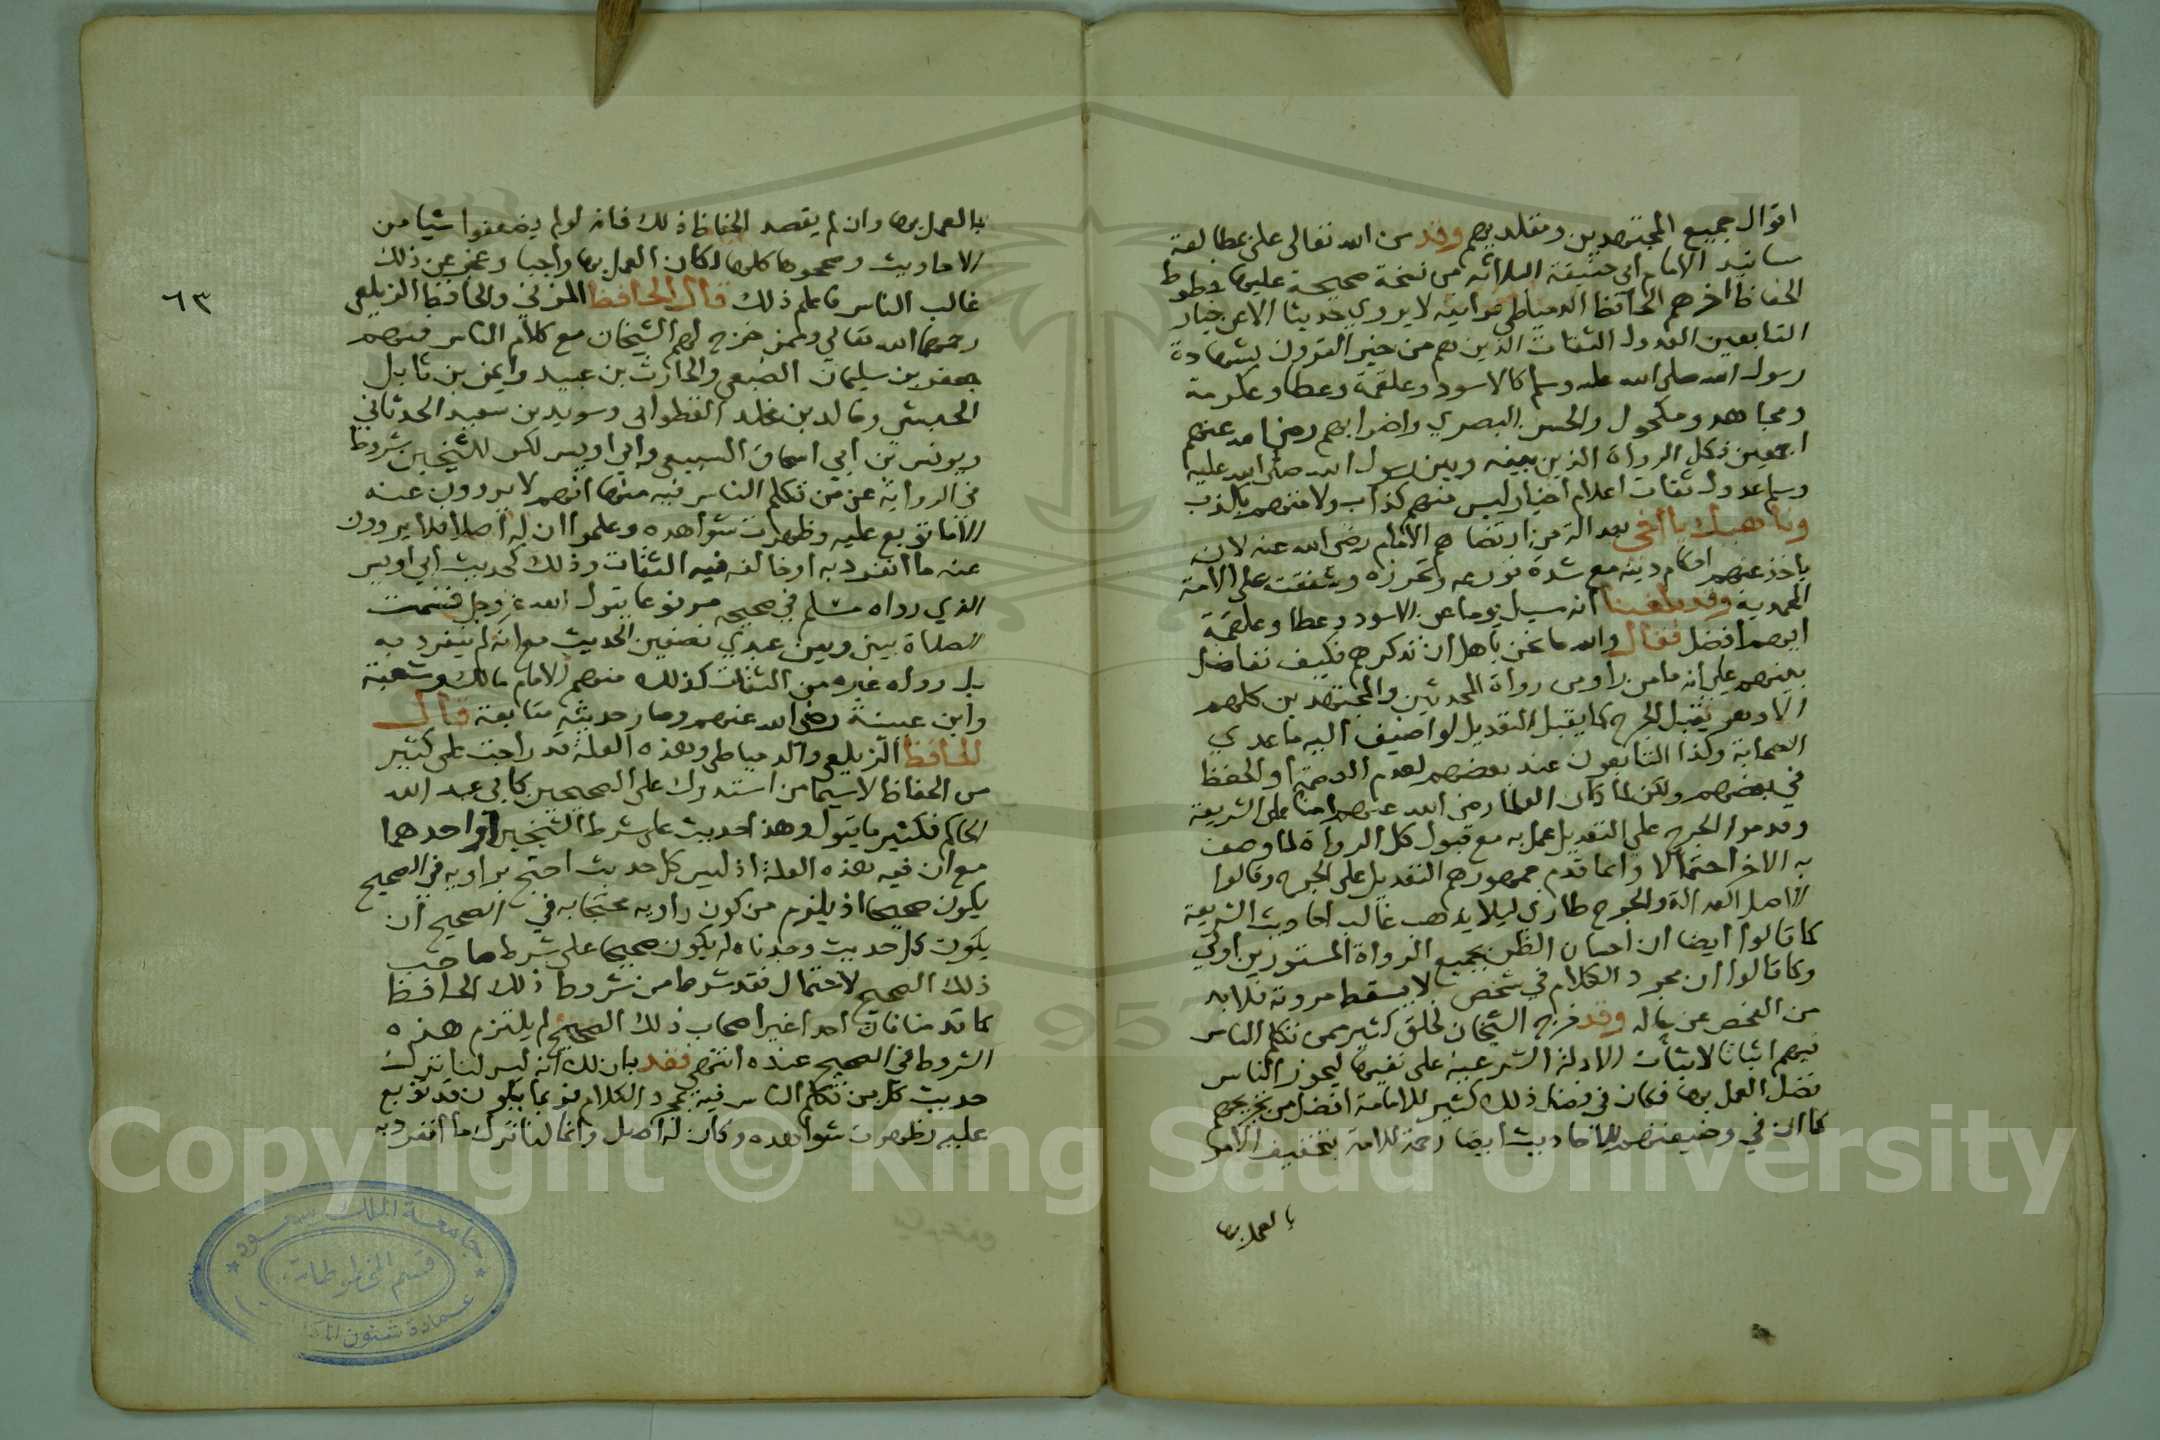 اقوال جميع المجتهدين ومقلديهم وقد من الله تعالى على بمطالعة
مسانيد الامام ابي حنيفة الثلاثة من نسخة صحيحة عليها خطوط
الحفاظ اخرهم الحافظ الدمياطي فرايته لا يروي حديثا الا عن خيار
التابعين العدول الثقات الذين هم من خير القرون بشهادة
رسول الله صلى الله عليه وسلم كالاسود وعلقمة وعطا وعكرمة
ومجاهد ومكحول والحسن البصري واضرابهم رضي الله عنهم
اجمعين فكل الرواة الذين بينه وبين رسول الله صلى الله عليه
وسلم عدول ثقات اعلام اخيار ليس فيهم كذاب ولا متهم بالكذب
وناهيك يا اخي بعدالة من ارتضاهم الامام رضي الله عنه لان
ياخذ عنهم احكام دينه مع شدة تورعه وتحرزه وشفقته على الامة
المحمدية وقد بلغنا انه سيل يوما عن الاسود وعطا وعلقمة
ايهم افضل فقال والله ما نحن باهل ان نذكرهم فكيف نفاضل
بينهم على انه ما من راو من رواة المحدثين والمجتهدين كلهم
الا وهو يقبل الجرح كما يقبل التعديل لو اضيف اليه ما عدي
الصحابة وكذا التابعون عند بعضهم لعدم العصمة او الحفظ
في بعضهم ولكن لما كان العلما رضي الله عنهم امنا على الشريعة
وقدموا الجرح على التعديل عمل به مع قبول كل الرواة لما وصف
به الاخر احتمالا وانما قدم جمهورهم التعديل على الجرح وقالوا
الاصل العدالة والجرح طاري ليلا يذهب غالب احاديث الشريعة
كما قالوا ايضا ان احسان الظن بجميع الرواة المستورين اولي
وكما قالوا ان مجرد الكلام في شخص لا يسقط مروته فلا بد
من الفحص عن حاله وقد خرج الشيخان لخلق كثير ممن تكلم الناس
فيهم اثباتا لاثبات الادلة الشرعية على نفيها ليحوز الناس
فضل العمل بها فكان في فضل ذلك كثير للامامة افضل من تجريحهم
كما ان في وضيعتهم للاحاديث ايضا رحمة للامة بتخفيف الامر
بالعمل بها
بالعمل بها وان لم يقصد الحفاظ ذلك فانه لو لم يضعفوا شيا من
الاحاديث وصححوها كلها لكان العمل بها واجبا وعجز عن ذلك
غالب الناس فاعلم ذلك قال الحافظ المزني والحافظ الزيلعي
رحمهما الله تعالي وممن خرج لهم الشيخان مع كلام الناس فيهم
جعفر بن سليمان الضبعي والحارث بن عبيد وايمن بن نابل
الحبشي وخالد بن مخلد القطواني وسويد بن سعيد الحدثاني
ويونس بن ابي اسحاق السبيعي وابي اويس لكن للشيخين شروط
في الرواية عن من تكلم الناس فيه منها انهم لا يروون عنه
الا ما توبع عليه وظهرت شواهده وعلموا ان له اصلا فلا يروون
عنه ما انفرد به او خالف فيه الثقات وذلك كحديث ابي اويس
الذي رواه مسلم في صحيحه مرفوعا يقول الله عز وجل قسمت
الصلاة بيني وبين عبدي نصفين الحديث مع انه لم ينفرد به
بل رواه غيره من الثقات كذلك منهم الامام مالك وشعبة
وابن عيينة رضي الله عنهم وصار حديثه متابعة قال
الحافظ الزيلعي والدمياطي وهذه العلة قد راجت على كثير
من الحفاظ لا سيما من استدرك على الصحيحين كابي عبد الله
الحاكم فكثيرا ما يقول وهذا حديث على شرط الشيخين او احدهما
مع ان فيه هذه العلة اذ ليس كل حديث احتج براويه في الصحيح
يكون صحيحا اذ يلزم من كون راويه محتجا به في الصحيح ان
يكون كل حديث وجدناه له يكون صحيحا على شرط صاحب
ذلك الصحيح لاحتمال فقد شرط من شروط ذلك الحافظ
كما قدمنا فان احدا غير اصحاب ذلك الصحيح لم يلتزم هذه
الشروط في الصحيح عنده انتهى فقد بان لك انه ليس لنا نترك
حديث كل من تكلم الناس فيه بمجرد الكلام فربما يكون قد توبع
عليه وظهرت شواهده وكان له اصل وانما لنا نترك ما انفرد به
٦٣
جامعة الملك سعود
قسم المخطوطات
عمادة شئون المكتبات
Copyright © King Saud University
1957